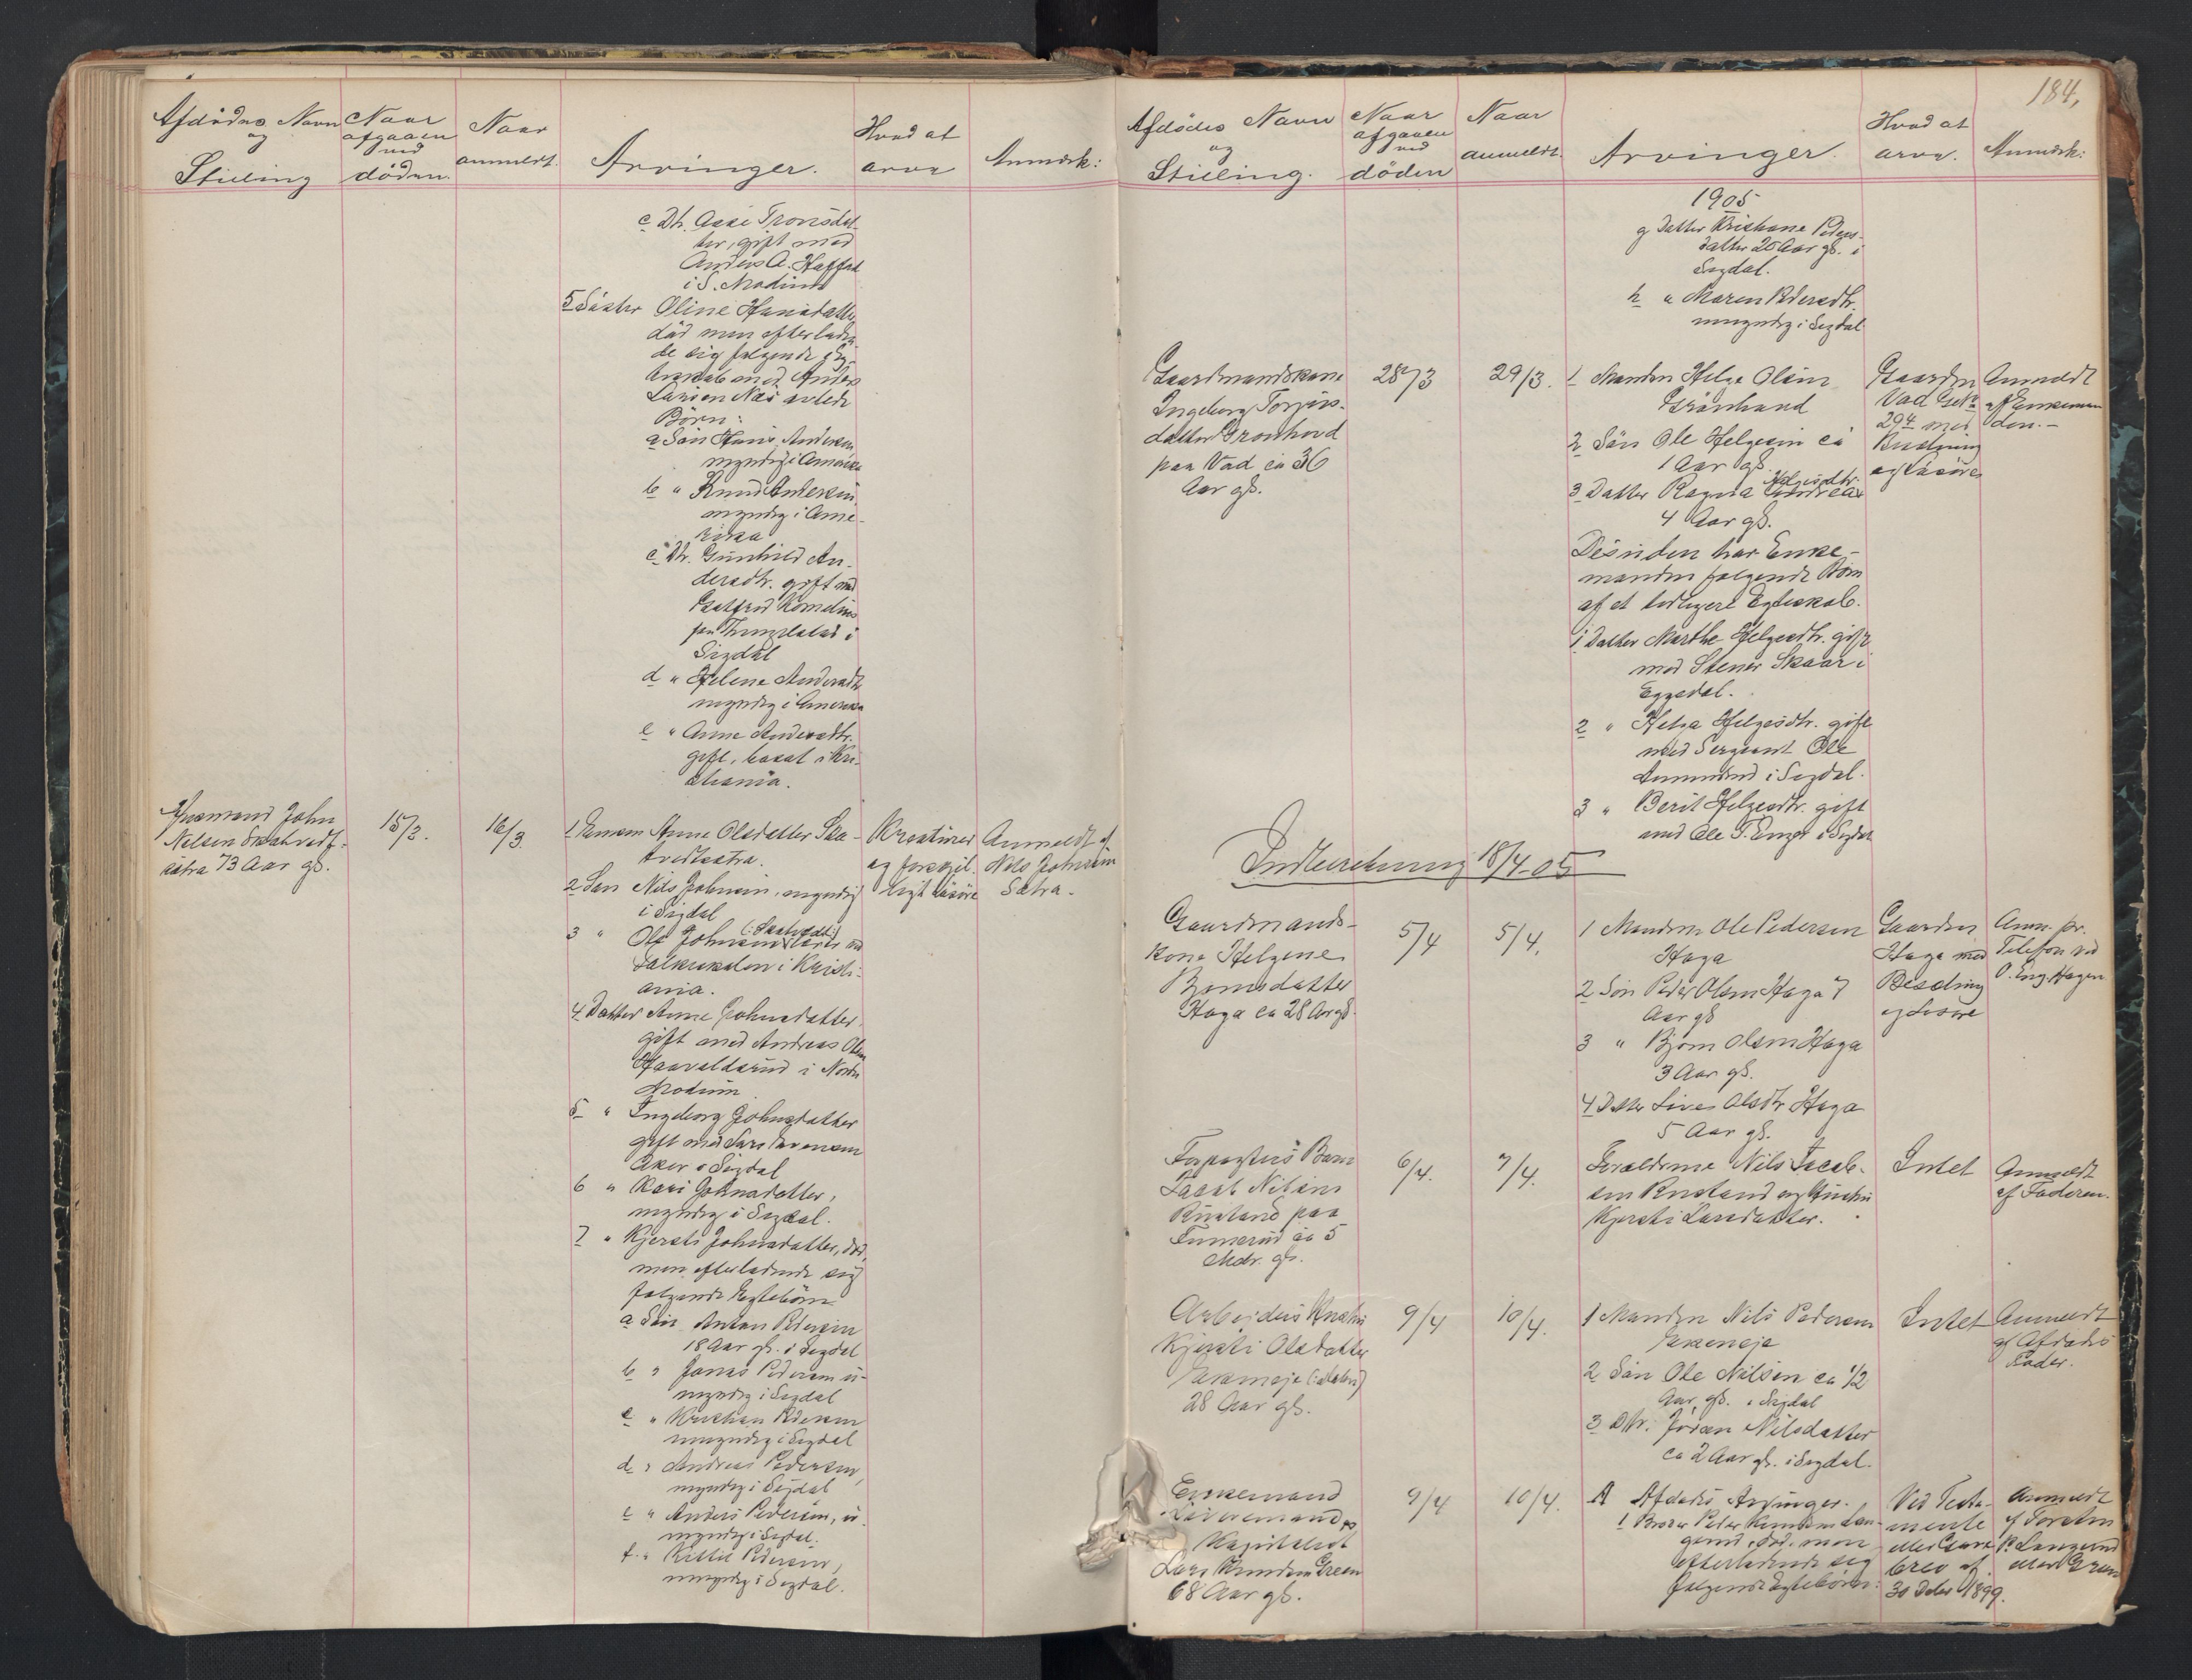 Afdödes Navn
og
Stilling
Naar
afgaaen
ved
döden.
Naar
anmeldt.
Arvinger.
Hvad at
arve
Anmærk:
c Dtr. Aase Tronsdat-
ter, gift med
Anders A.
i S. Modum
5 Söster Oline Hansdatter
död men efterladen-
de sig følgende i Eg-
teskab med Anders
Larsen Næs avlede
Börn:
a Sön Hans Andersen
myndig i Amerika
b " Knud Andersen
myndig i Ame-
rika
c Dtr. Gunhild An-
dersdtr. gift med
paa i
Sigdal
d " Helene Andersdtr
myndig i Amerika
e " Anne Andersdtr.
gift, bosat i Kri-
stiania.
Husmand John
Nelsen Skatvedt-
sætra 73 Aar gl.
15/3.
16/3.
1 Enken Anne Olsdatter Ska-
tvedtsætra.
2 Sön Nils Johnsen, myndig
i Sigdal
3 " Ole Johnsen (: Skatvedt :)
i Kristi-
ania.
4 Datter Anne Johnsdatter,
gift med Andreas Olsen
Haavaldsrud i Nordre
Modum
5 " Ingeborg Johnsdatter
gift med Lars
Aker i Sigdal
6 " Kari Johnsdatter,
myndig i Sigdal.
7 " Kjersti Johnsdatter, död,
men efterladende sig
følgende Egtebörn
a Sön Anton Pedersen
18 Aar gl. i Sigdal
b " Jonas Pedersen u-
myndig i Sigdal
c " Kristian Pedersen
umyndig i Sigdal
d " Andreas Pedersen,
myndig i Sigdal
e " Anders Pedersen, u-
myndig i Sigdal.
f " Kittil Pedersen,
umyndig i Sigdal.
Kreaturer
og forskjel-
ligt Lösöre
Anmeldt af
Nils Johnsen
Sætra.
184,
Afdödes Navn
og
Stilling.
Naar
afgaaen
ved
döden
Naar
anmeldt.
Arvinger.
Hvad at
arve.
Anmærk:
1905
g Datter Kristiane Peders-
datter 20 Aar gl. i
Sigdal.
h " Maren Pedersdtr.
umyndig i Sigdal
Gaardmandskone
Ingeborg
datter Grönhovd
paa Vad ca 36
Aar gl.
28/3
29/3.
1 Manden Helge Olsen
Grönhovd
2 Sön Ole Helgesen ca
1 Aar gl.
3 Datter Ragna Helgesdtr. ca
4 Aar gl.
Desuden har Enke-
manden følgende Börn
af et tidligere Egteskab.
1 Datter Marthe Helgesdtr. gift
med Stener Skaar i
Eggedal.
2 " Helga Helgesdtr. gift
med Sergeant Ole
i Sigdal.
3 " Berit Helgesdtr. gift
med Ole T. i Sigdal
Gaarden
Vad
29 med
Besetning
og Lösöre
Anmeldt
af Enkeman-
den.
Indberetning 18/4-05
Gaardmands-
kone Helgene
Björnsdatter
Haga ca 28 Aar gl.
5/4
5/4.
1 Manden Ole Pedersen
Haga
2 Sön Peder Olsen Haga 7
Aar gl
3 " Björn Olsen Haga
3 Aar gl.
4 Datter Olsdtr Haga
5 Aar gl.
Gaarden
Haga med
Besetning
og Lösöre
Anm. pr.
Telefon ved
O. Eng. Hagen
Forpagters Barn
Jacob Nilsen
Rustand paa
ca 5
Mdr. gl.
6/4.
7/4.
Forældrene Nils Jacob-
sen Rustand og Hustru
Kjersti Larsdatter.
Intet
Anmeldt
af Faderen.
Arbeiders Hustru
Kjersti Olsdatter
28 Aar gl.
9/4
10/4.
1 Manden Nils Pedersen
2 Sön Ole Nilsen ca 1/2
Aar, gl. i Sigdal
3 Dtr. Nilsdatter
ca 2 Aar gl. i Sigdal.
Intet
Anmeldt
af Afdödes
Fader.
Enkemand
Kapitalist
Lars Knudsen Green
68 Aar gl.
9/4
10/4.
A Afdödes Arvinger.
1 Broder Peder Knudsen Lan-
gerud, död, men
efterladende sig
følgende Egtebörn:
Ved Testa-
mente
eller Gave-
brev af
30 Debr 1899.
Anmeldt
af Torsten
P. Langerud